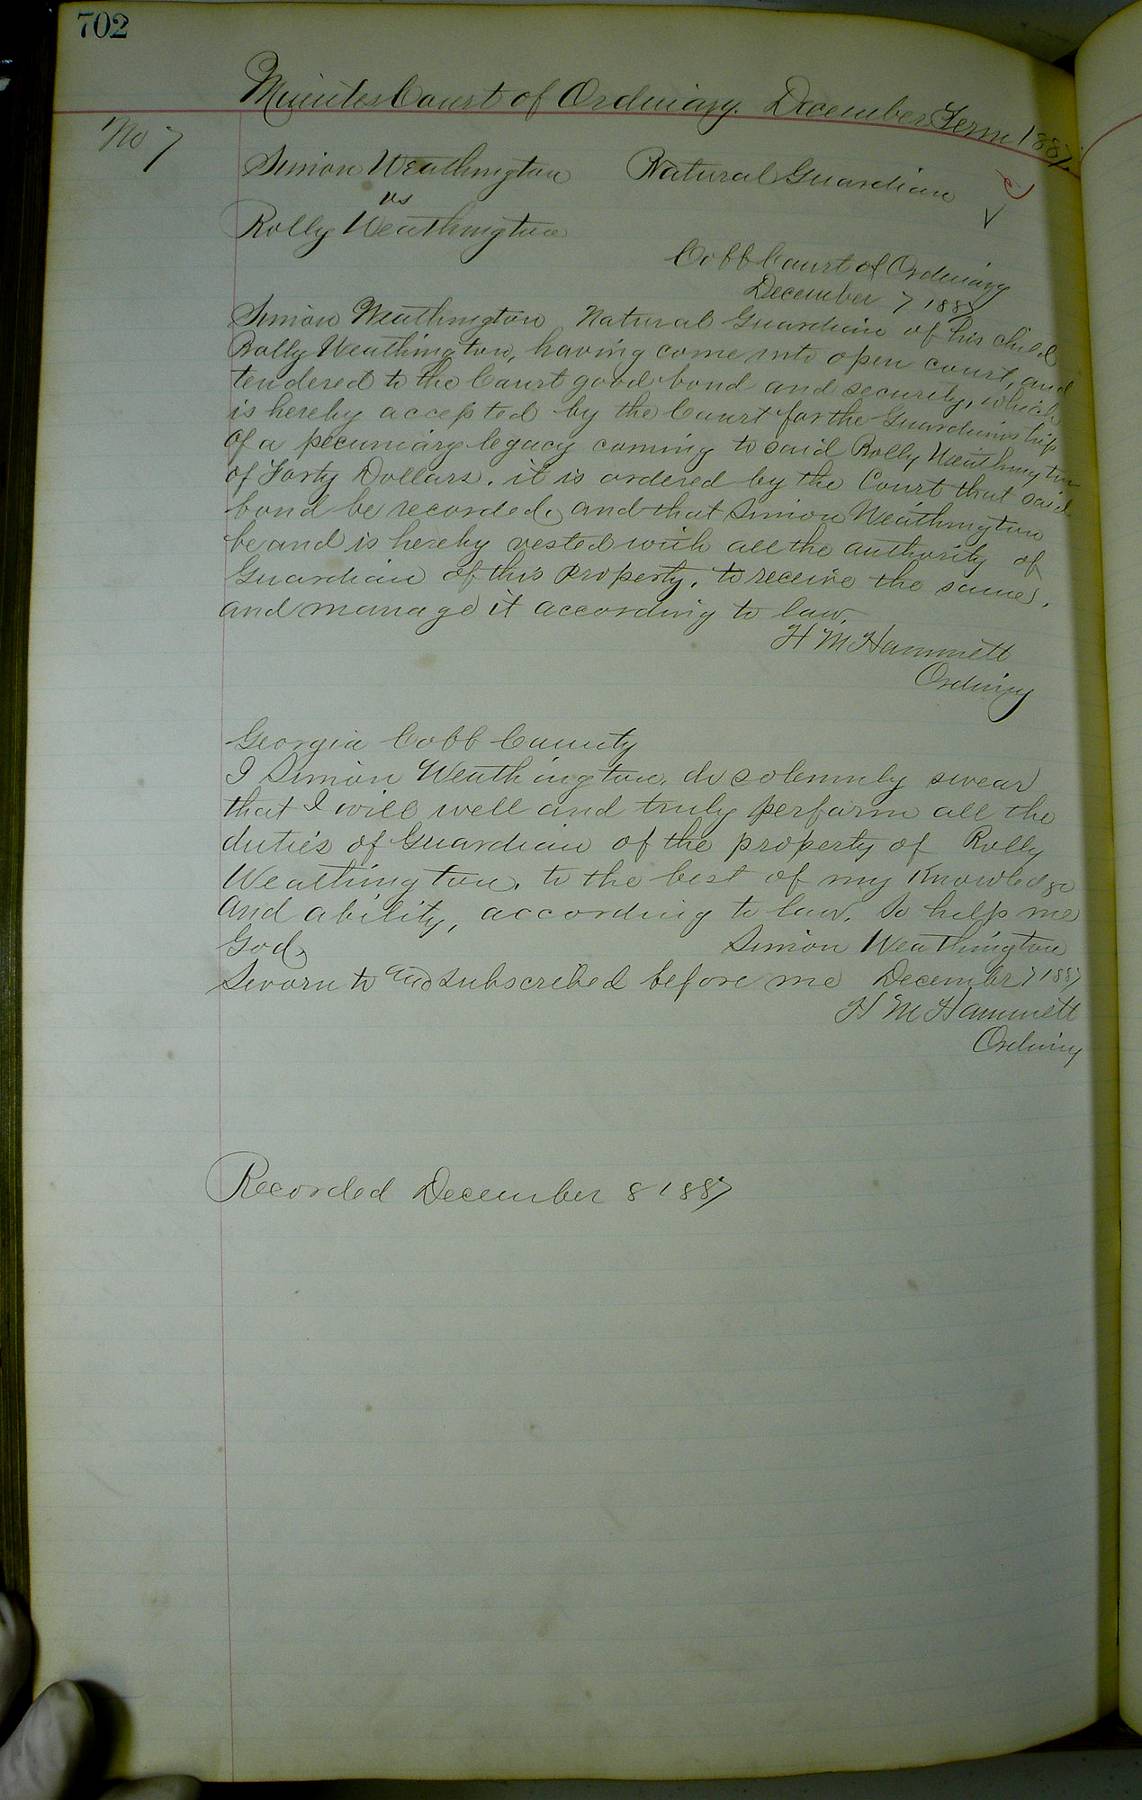 702
Minutes Court of Ordinary. December Term 1887
No 7
Simion Weathington Natural Guardian
vs
Rolly Weathington
Cobb Court of Ordinary
December 7 1887
Simion Weathington Natural Guardian of his child
Rolly Weathington, having come into open court, and
tendered to the Court good bond and security, which
is hereby accepted by the Court for the Guardianship
of a pecuniary legacy coming to said Rolly Weathington
of Forty Dollars. it is ordered by the Court that said
bond be recorded, and that Simion Weathington
be and is hereby vested with all the authority of
Guardian of this Property, to receive the same,
and manage it according to law.
H M Hammett
Ordinary
Georgia Cobb County
I Simion Weathington, do solemnly swear
that I will well and truly perform all the
duties of Guardian of the property of Rolly
Weathington, to the best of my Knowledge
and ability, according to law. So help me
God, Simion Weathington
Sworn to and subscribed before me December 7 1887
H M Hammett
Ordinary
Recorded December 8 1887